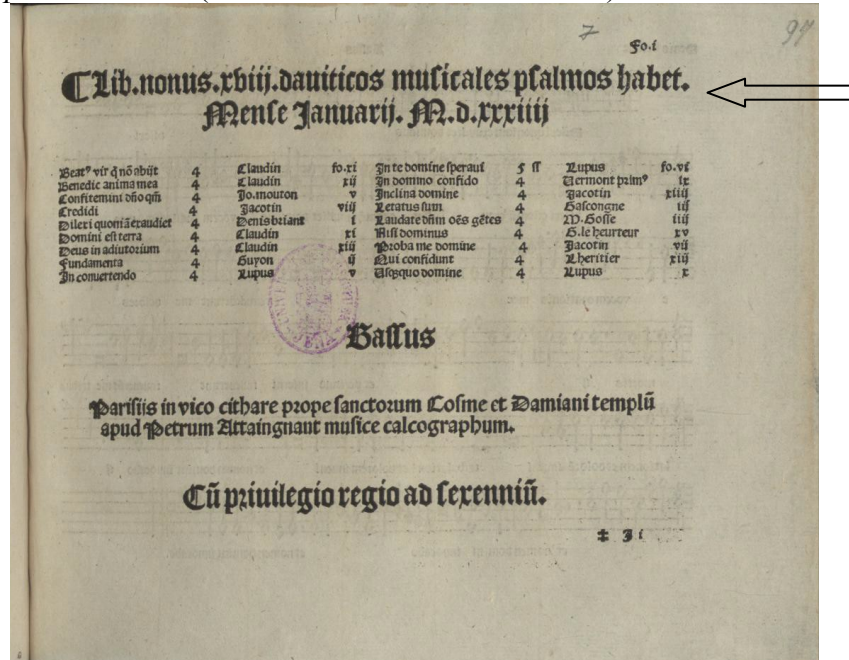 7
Fo.i
97
¶ Lib.nonus.xviij.dauiticos musicales psalmos habet.
Mense Januarij. M.d.xxxiiij
Beat⁹ vir q̄ nō abijt 4 Claudin fo.xi
Benedic anima mea 4 Claudin xij
Confitemini dño qm̄ 4 Jo.mouton v
Credidi 4 Jacotin viij
Dilexi quoniā exaudiet 4 Denis briant i
Domini est terra 4 Claudin xi
Deus in adiutorium 4 Claudin xiij
Fundamenta 4 Guyon ij
In conuertendo 4 Lupus v
In te domine speraui 5 ſſ Lupus fo.vi
In domino confido 4 Vermont prim⁹ ix
Inclina domine 4 Jacotin xiiij
Letatus sum 4 Gascongne iij
Laudate dñm oēs gētes 4 M.Gosse iiij
Nisi dominus 4 G.le heurteur xv
Proba me domine 4 Jacotin vij
Qui confidunt 4 Lheritier xiij
Usqꝫquo domine 4 Lupus x
Bassus
Parisijs in vico cithare prope sanctorum Cosme et Damiani templū
apud Petrum Attaingnant musice calcographum.
Cū priuilegio regio ad sexenniū.
‡ J i